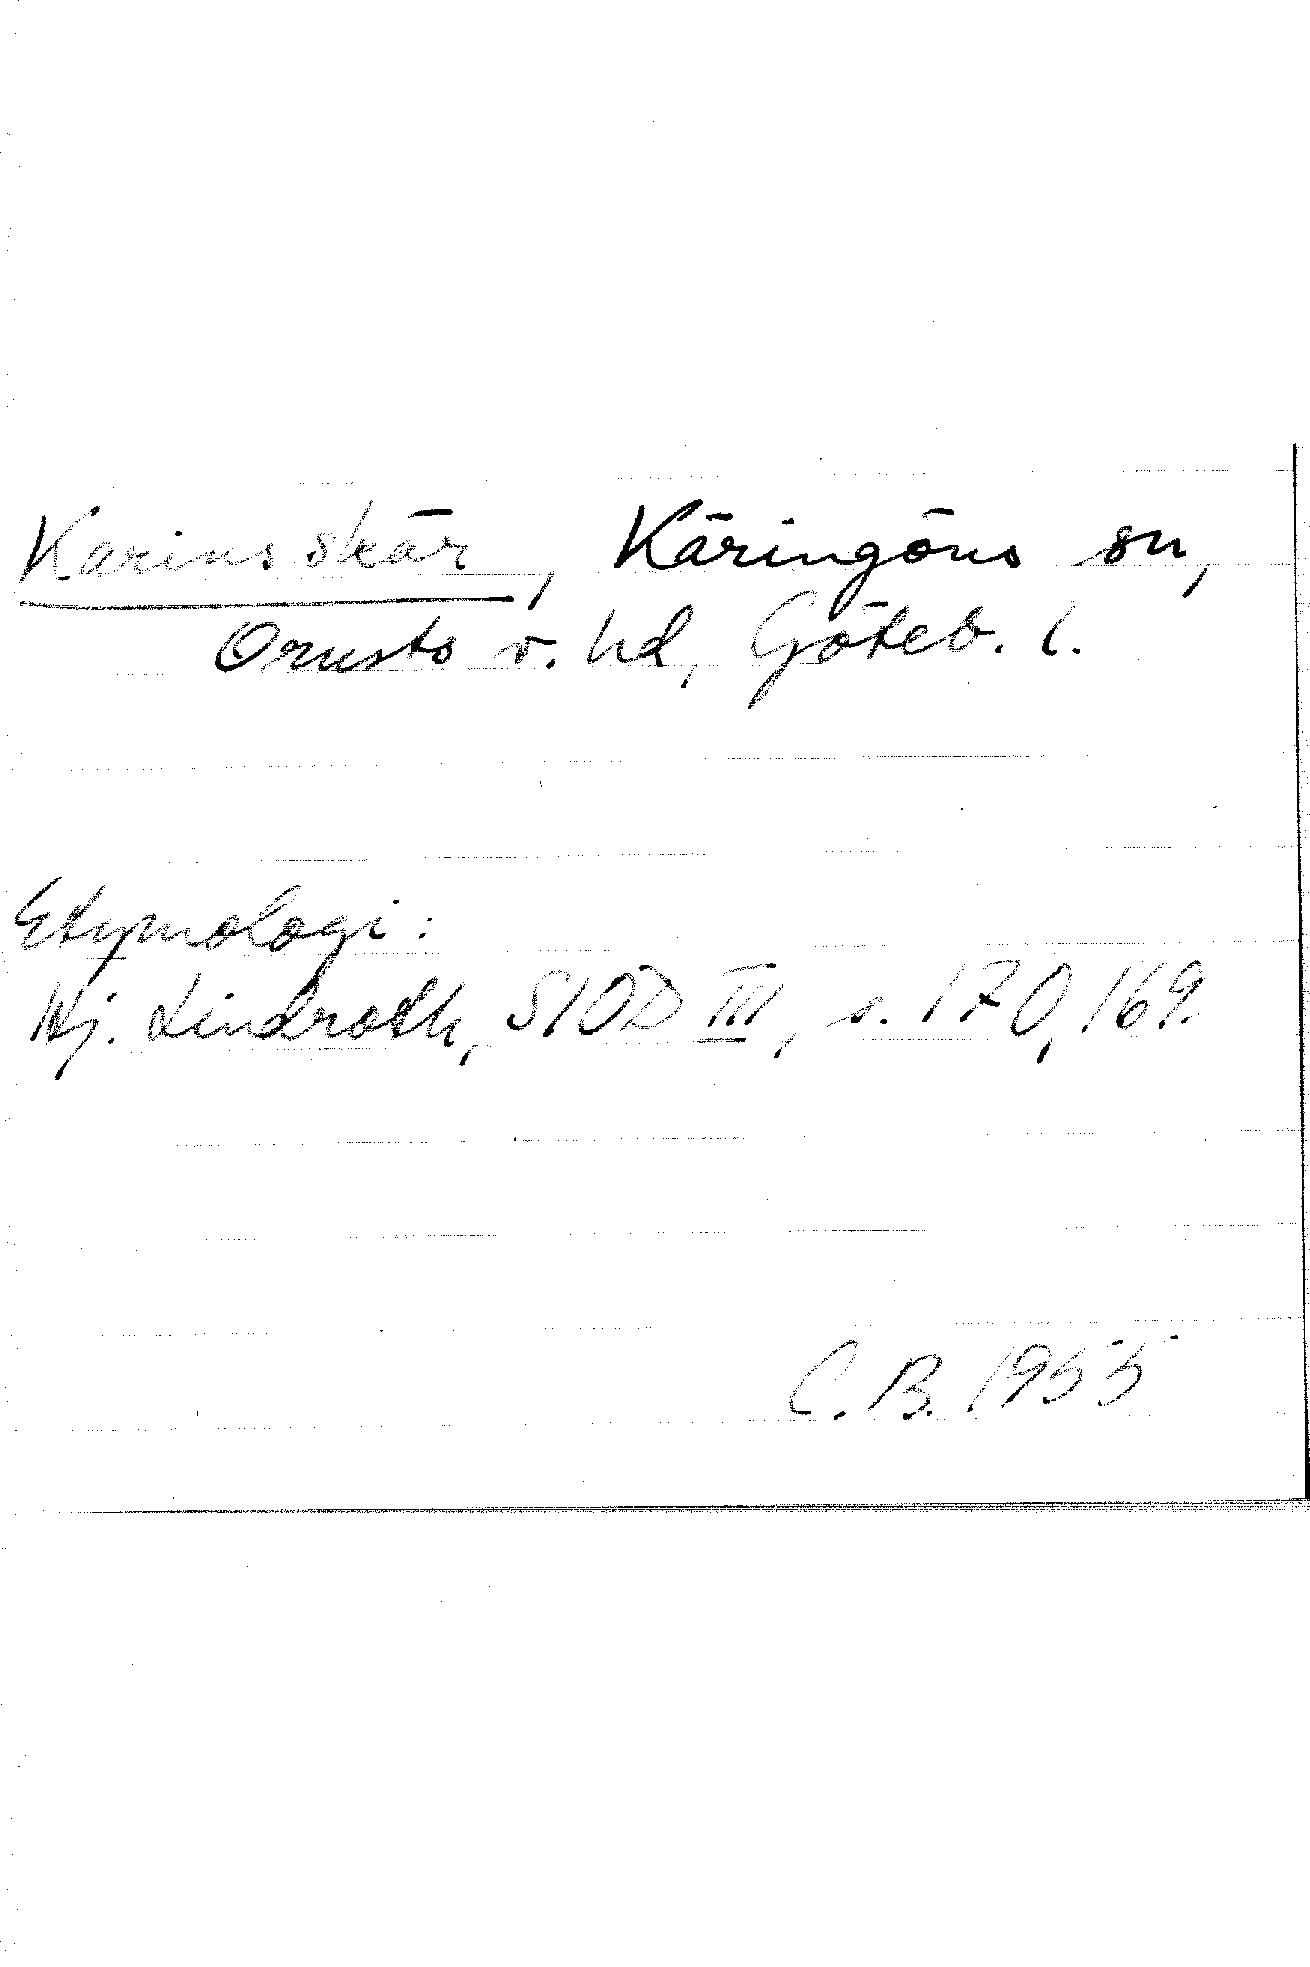 Karinsskär, Käringöns sn,
Orusts v. hd, Göteb. l.
Etymologi:
Hj. Lindroth, SIOD III, s. 170, 169.
C. B. 1955